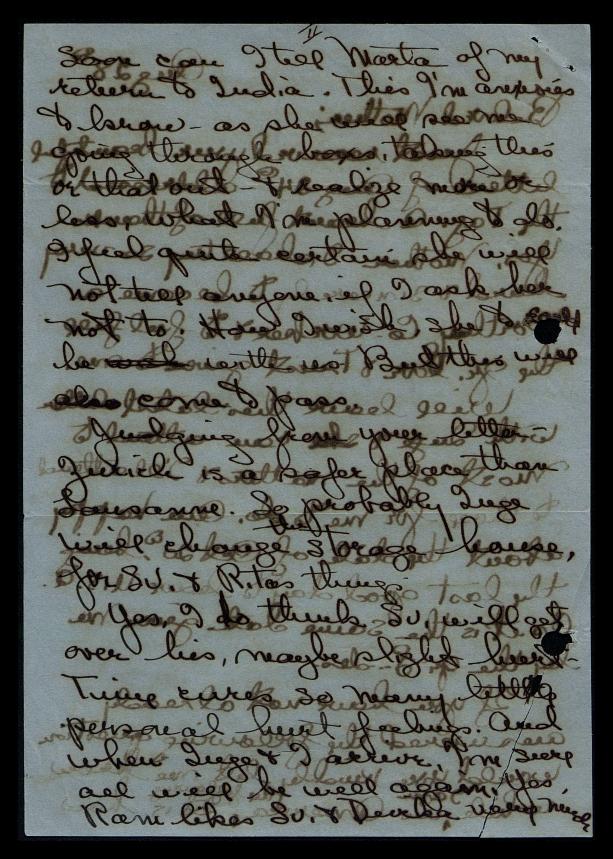 II
Soon can I tell Marta of my
return to India. This I'm anxious
to know - as she will see me
going through boxes, taking this
or that out - & realize more or
less, what I'm planning to do.
I feel quite certain she will
not tell anyone, if I ask her
not to. How I wish, she too
be with us. But this will
also come to pass.
Judging from your letter -
Zurich is a safer place than
Lausanne. So probably Inge
will change the storage house,
for Sv. & Ritas things.
Yes, I do think Sv. will get
over his, maybe slight hurt -
Time cures so many little
personal hurt feelings. And
when Inge & I arrive, I'm sure
all will be well again. Yes,
Ram likes Sv. & Devika very much